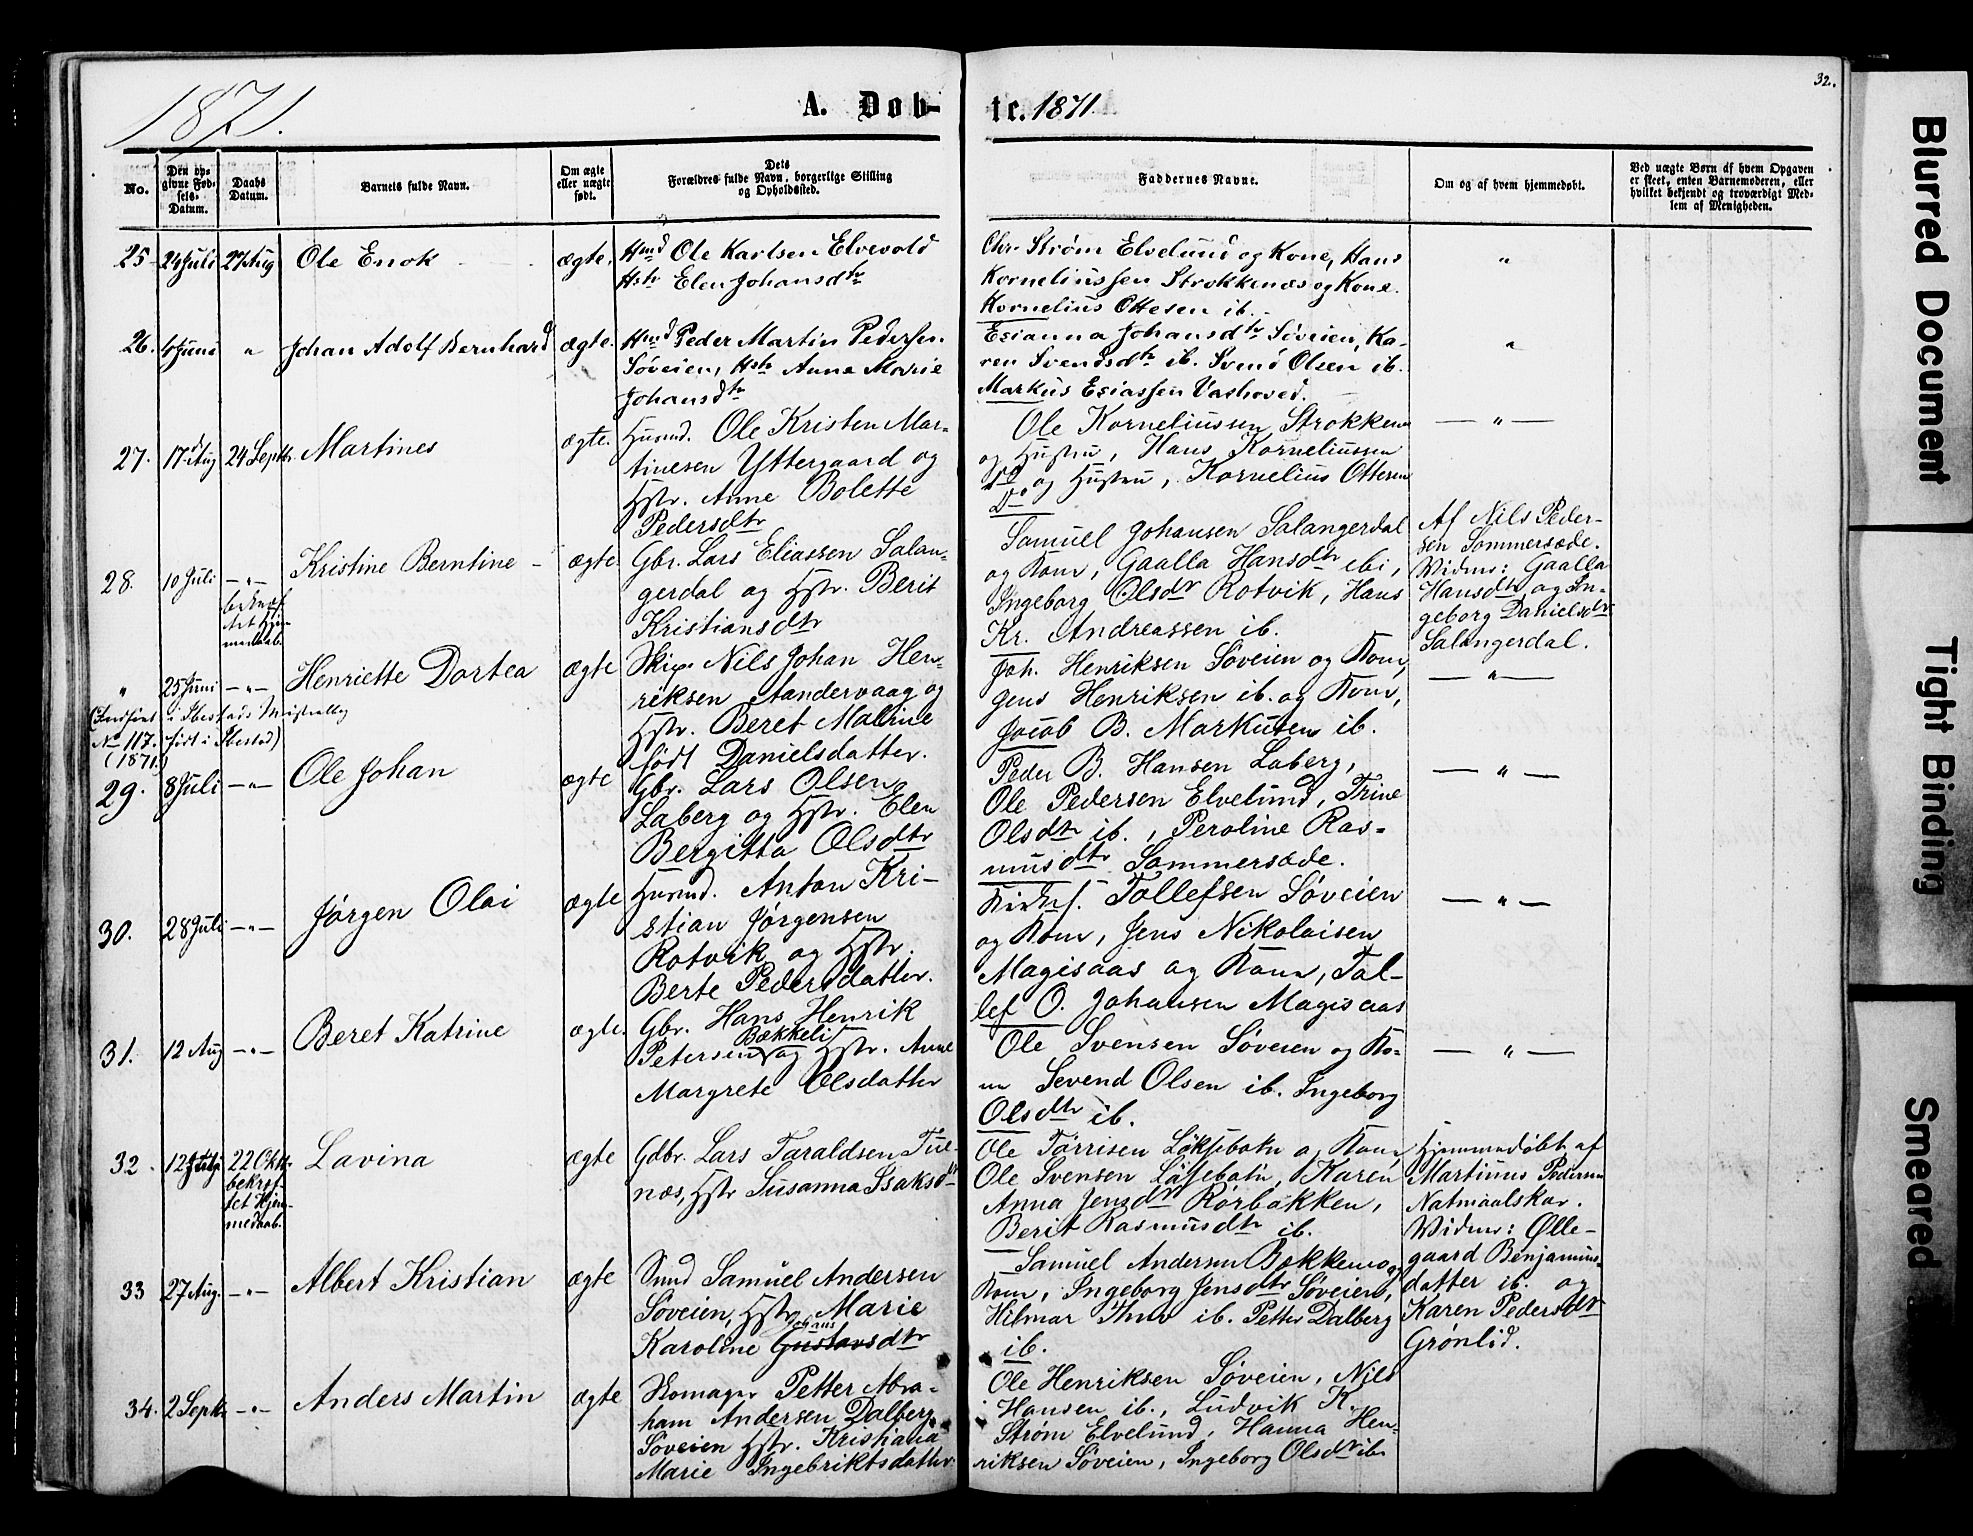 1871.
A. Døb-
te. 1871.
32.
No.
Den opgivne Fødsels-Datum.
Daabs Datum.
Barnets fulde Navn.
Om ægte eller uægte født.
Dets Forældres fulde Navn, borgerlige Stilling og Opholdssted.
Faddernes Navne.
Om og af hvem hjemmedøbt.
Ved uægte Børn af hvem Opgaven er skeet, enten Barnemoderen, eller hvilket bekjendt og troværdigt Medlem af Menigheden.
25 24 Juli 27 Aug Ole Enok ægte.
Hmd Ole Karlsen Elvevold
Hstr Elen Johansdtr
Chr. Strøm Elvelund og Kone, Hans
Korneliussen Strokkenæs og Kone.
Kornelius Ottesen ib.
"
26. 4 Juni " Johan Adolf Bernhard ægte.
Hmd Peder Martin Pedersen
Søveien, Hstr Anne Marie
Johansdtr
Esianna Johansdtr Søveien, Ka-
ren Svendsdtr ib. Svend Olsen ib.
Markus Esiassen Vashoved.
"
27. 17d Aug 24 Septbr. Martines ægte.
Husmd. Ole Kristen Mar-
tinesen Yttergaard og
Hstr. Anne Bolette
Pedersdtr
Ole Korneliussen Strokkenæs
og Hustru, Hans Korneliussen
Do og Hustru, Kornelius Ottesen
Do
— " —
28. 10 Juli — " —
bekræf-
tet Hjem-
medaab.
Kristine Berntine - ægte
Gbr. Lars Eliassen Salan-
gerdal og Hstr. Berit
Kristiansdtr
Samuel Johansen Salangerdal
og Kone, Gaalla Hansdtr ibi,
Ingeborg Olsdtr Rotvik, Hans
Kr. Andreassen ib.
Af Nils Peder-
sen Sommersæde.
Widner: Gaalla
Hansdtr og In-
geborg Danielsdtr
Salangerdal.
" 25 Juni — " — Henriette Dortea ægte
(Indført i Ibestads Ministerialbog
No 117. født i Ibestad)
(1871.)
Skipr Nils Johan Hen-
riksen Aandervaag og
Hstr. Beret Malrine
født Danielsdatter.
Joh. Henriksen Søveien og Kone,
Jens Henriksen ib. og Kone,
Jacob B. Markusen ib.
— " —
29. 8 Juli — " — Ole Johan ægte
Gbr. Lars Olsen
Laberg og Hstr. Elen
Bergitta Olsdtr
Peder B. Hansen Laberg,
Ole Pedersen Elvelund, Trine
Olsdtr ib., Peroline Ras-
musdtr Sommersæde.
— " —
30. 28 Juli — " — Jørgen Olai ægte
Husmd. Anton Kri-
stian Jørgensen
Rotvik og Hstr.
Berte Pedersdatter.
Kirkes. Tollefsen Søveien
og Kone, Jens Nikolaisen
Magisaas og Kone, Tol-
lef O. Johansen Magisaas
— " —
31. 12 Aug — " — Beret Katrine ægte.
Gbr. Hans Henrik
Bækkeli
Petersen og Hstr. Anne
Margrete Olsdatter
Ole Svensen Søveien og Ko-
ne Sevend Olsen ib. Ingeborg
Olsdtr ib.
— " —
32. 12 Juli 22 Oktbr.
bekræf-
tet Hjem-
medaab.
Lavina ægte
Gdbr. Lars Taraldsen Tue-
næs, Hstr Susanna Isaksdtr
Ole Tørrisen Løksebotn og Kone,
Ole Svensen Løksebotn, Karen
Anna Jensdtr Rørbakken,
Berit Rasmusdtr ib.
Hjemmedøbt af
Martinus Pedersen
Natmaalskar.
Widner: Ølle-
gaard Benjamins-
datter ib. og
Karen Pedersdtr
Grønlid.
33 27 Aug. — " — Albert Kristian ægte
Smd Samuel Andersen
Søveien, Hstr Marie
Johans
Karoline Gustavsdtr
Samuel Andersen Bakkemo og
Kone, Ingeborg Jensdtr Søveien,
Hilmar ib. Petter Dalberg
ib.
34. 2 Septr — " — Anders Martin ægte
Skomager Petter Abra-
ham Andersen Dalberg
Søveien Hstr. Kristiana
Marie Ingebriktsdatter
Ole Henriksen Søveien, Nils
Hansen ib., Ludvik K.
Strøm Elvelund, Hanna Hen-
riksen Søveien, Ingeborg Olsdtr ib.
Blurred Document
Tight Binding
Smeared